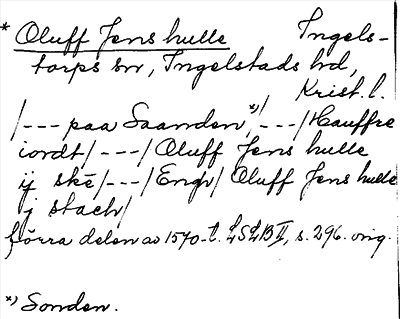 * Oluff Jens hulle Ingels-
torps sn, Ingelstads hd,
Krist. l.
/--- paa Saanden,*)/---/ Hauffre
iordt/---/ Oluff Jens hulle
ij ske/---/ Engh/ Oluff Jens hulle
j stach/
förra delen av 1570-t. LSLB II, s. 296. orig.
*) Sonden.